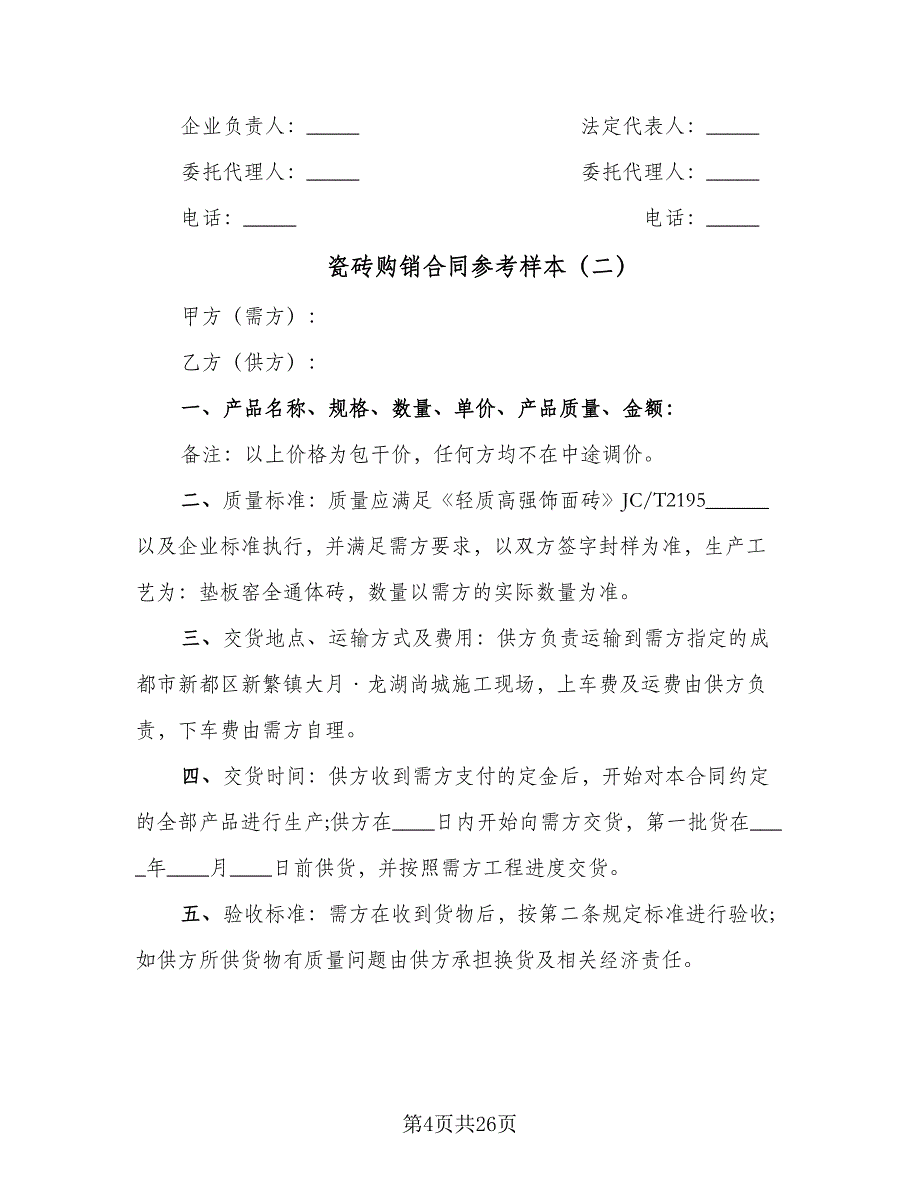 企业负责人：_____ 法定代表人：_____
委托代理人：_____ 委托代理人：_____
电话：_____ 电话：_____
瓷砖购销合同参考样本（二）
甲方（需方）：
乙方（供方）：
一、产品名称、规格、数量、单价、产品质量、金额：
备注：以上价格为包干价，任何方均不在中途调价。
二、质量标准：质量应满足《轻质高强饰面砖》JC/T2195______
以及企业标准执行，并满足需方要求，以双方签字封样为准，生产工
艺为：垫板窑全通体砖，数量以需方的实际数量为准。
三、交货地点、运输方式及费用：供方负责运输到需方指定的成
都市新都区新繁镇大月·龙湖尚城施工现场，上车费及运费由供方负
责，下车费由需方自理。
四、交货时间：供方收到需方支付的定金后，开始对本合同约定
的全部产品进行生产;供方在____日内开始向需方交货，第一批货在___
_年____月____日前供货，并按照需方工程进度交货。
五、验收标准：需方在收到货物后，按第二条规定标准进行验收;
如供方所供货物有质量问题由供方承担换货及相关经济责任。
第4页共26页